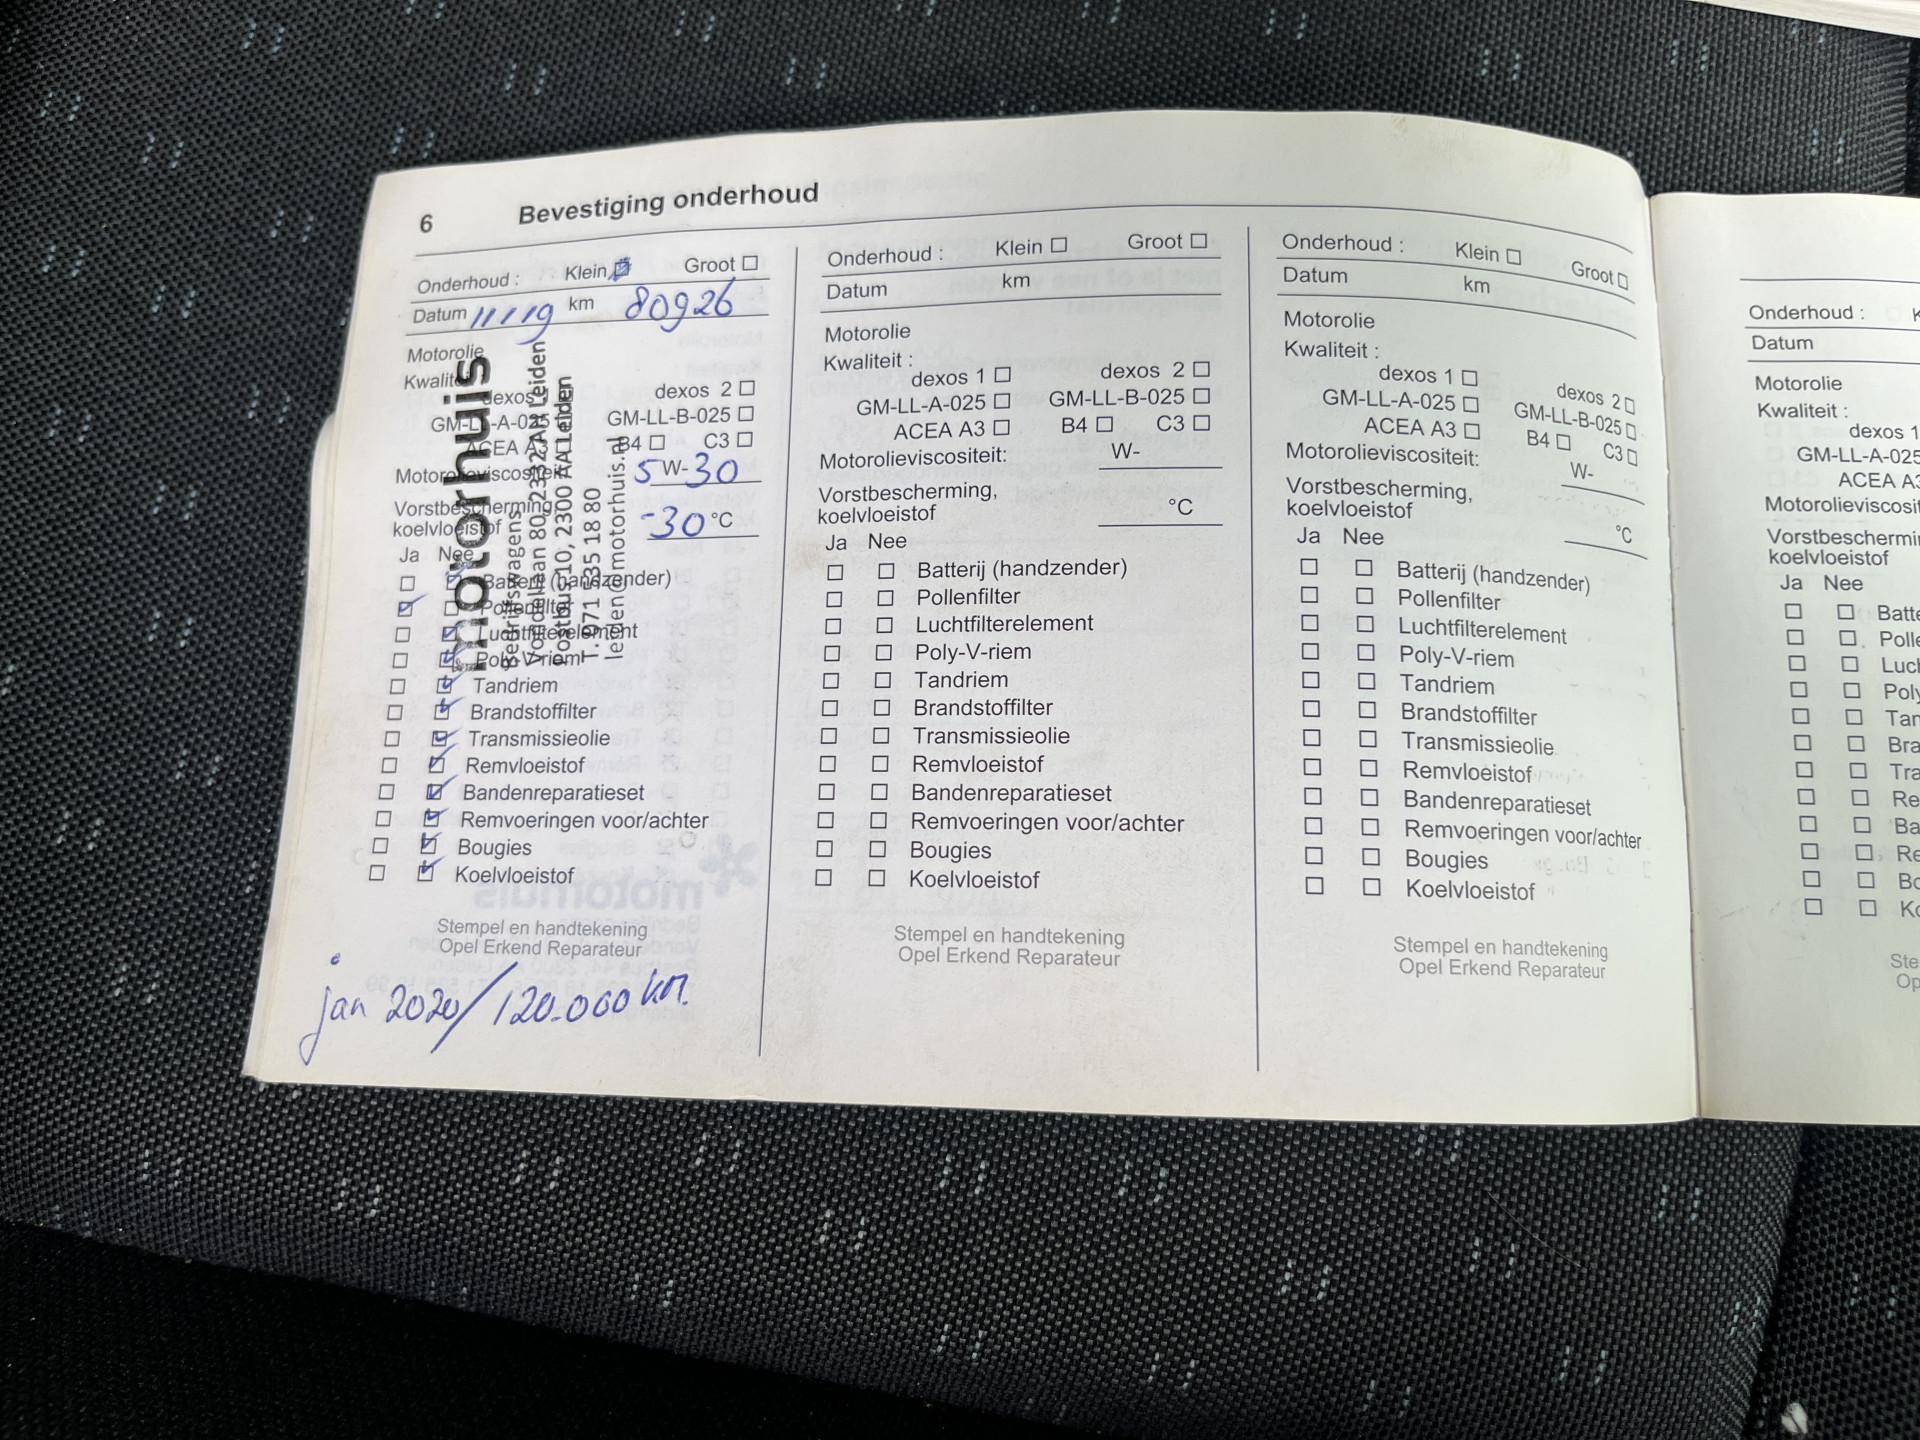 6 Bevestiging onderhoud
Onderhoud : Klein Groot
Datum 11 1 19 km 80926
Motorolie
Kwaliteit
dexos 1 dexos 2
GM-LL-A-025 GM-LL-B-025
ACEA A3 B4 C3
Motorolieviscositeit 5 W- 30
Vorstbescherming,
koelvloeistof -30 °C
Ja Nee
Batterij (handzender)
Pollenfilter
Luchtfilterelement
Poly-V-riem
Tandriem
Brandstoffilter
Transmissieolie
Remvloeistof
Bandenreparatieset
Remvoeringen voor/achter
Bougies
Koelvloeistof
Stempel en handtekening
Opel Erkend Reparateur
jan 2020/120.000 km.
motorhuis
Bedrijfswagens
Vondellaan 80, 2332 AH Leiden
Postbus 10, 2300 AA Leiden
T. 071 535 18 80
leiden@motorhuis.nl
Onderhoud : Klein Groot
Datum km
Motorolie
Kwaliteit :
dexos 1 dexos 2
GM-LL-A-025 GM-LL-B-025
ACEA A3 B4 C3
Motorolieviscositeit: W-
Vorstbescherming,
koelvloeistof °C
Ja Nee
Batterij (handzender)
Pollenfilter
Luchtfilterelement
Poly-V-riem
Tandriem
Brandstoffilter
Transmissieolie
Remvloeistof
Bandenreparatieset
Remvoeringen voor/achter
Bougies
Koelvloeistof
Stempel en handtekening
Opel Erkend Reparateur
Onderhoud : Klein Groot
Datum km
Motorolie
Kwaliteit :
dexos 1 dexos 2
GM-LL-A-025 GM-LL-B-025
ACEA A3 B4 C3
Motorolieviscositeit: W-
Vorstbescherming,
koelvloeistof °C
Ja Nee
Batterij (handzender)
Pollenfilter
Luchtfilterelement
Poly-V-riem
Tandriem
Brandstoffilter
Transmissieolie
Remvloeistof
Bandenreparatieset
Remvoeringen voor/achter
Bougies
Koelvloeistof
Stempel en handtekening
Opel Erkend Reparateur
Onderhoud : K
Datum
Motorolie
Kwaliteit :
dexos 1
GM-LL-A-025
ACEA A3
Motorolieviscosit
Vorstbeschermi
koelvloeistof
Ja Nee
Batte
Polle
Luch
Poly
Tan
Bra
Tra
Re
Ba
Re
Bo
Ko
Ste
Op